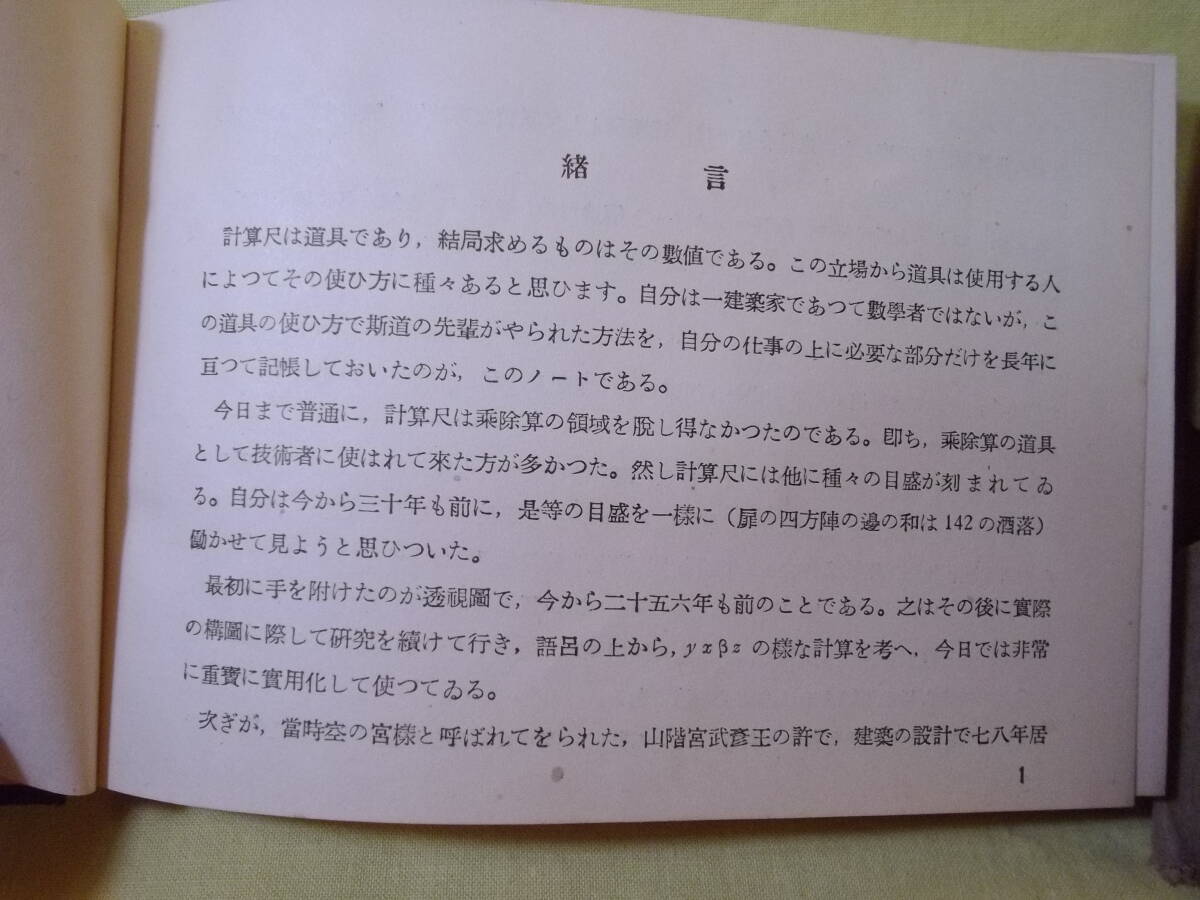 緒言
計算尺は道具であり，結局求めるものはその數値である。この立場から道具は使用する人
によつてその使ひ方に種々あると思ひます。自分は一建築家であつて數學者ではないが，こ
の道具の使ひ方で斯道の先輩がやられた方法を，自分の仕事の上に必要な部分だけを長年に
亘つて記帳しておいたのが，このノートである。
今日まで普通に，計算尺は乘除算の領域を脫し得なかつたのである。卽ち，乘除算の道具
として技術者に使はれて來た方が多かつた。然し計算尺には他に種々の目盛が刻まれてゐ
る。自分は今から三十年も前に，是等の目盛を一樣に（扉の四方陣の邊の和は142の洒落）
働かせて見ようと思ひついた。
最初に手を附けたのが透視圖で，今から二十五六年も前のことである。之はその後に實際
の構圖に際して研究を續けて行き，語呂の上から，yxβzの樣な計算を考へ，今日では非常
に重寶に實用化して使つてゐる。
次ぎが，當時空の宮樣と呼ばれてをられた，山階宮武彥王の許で，建築の設計で七八年居
1